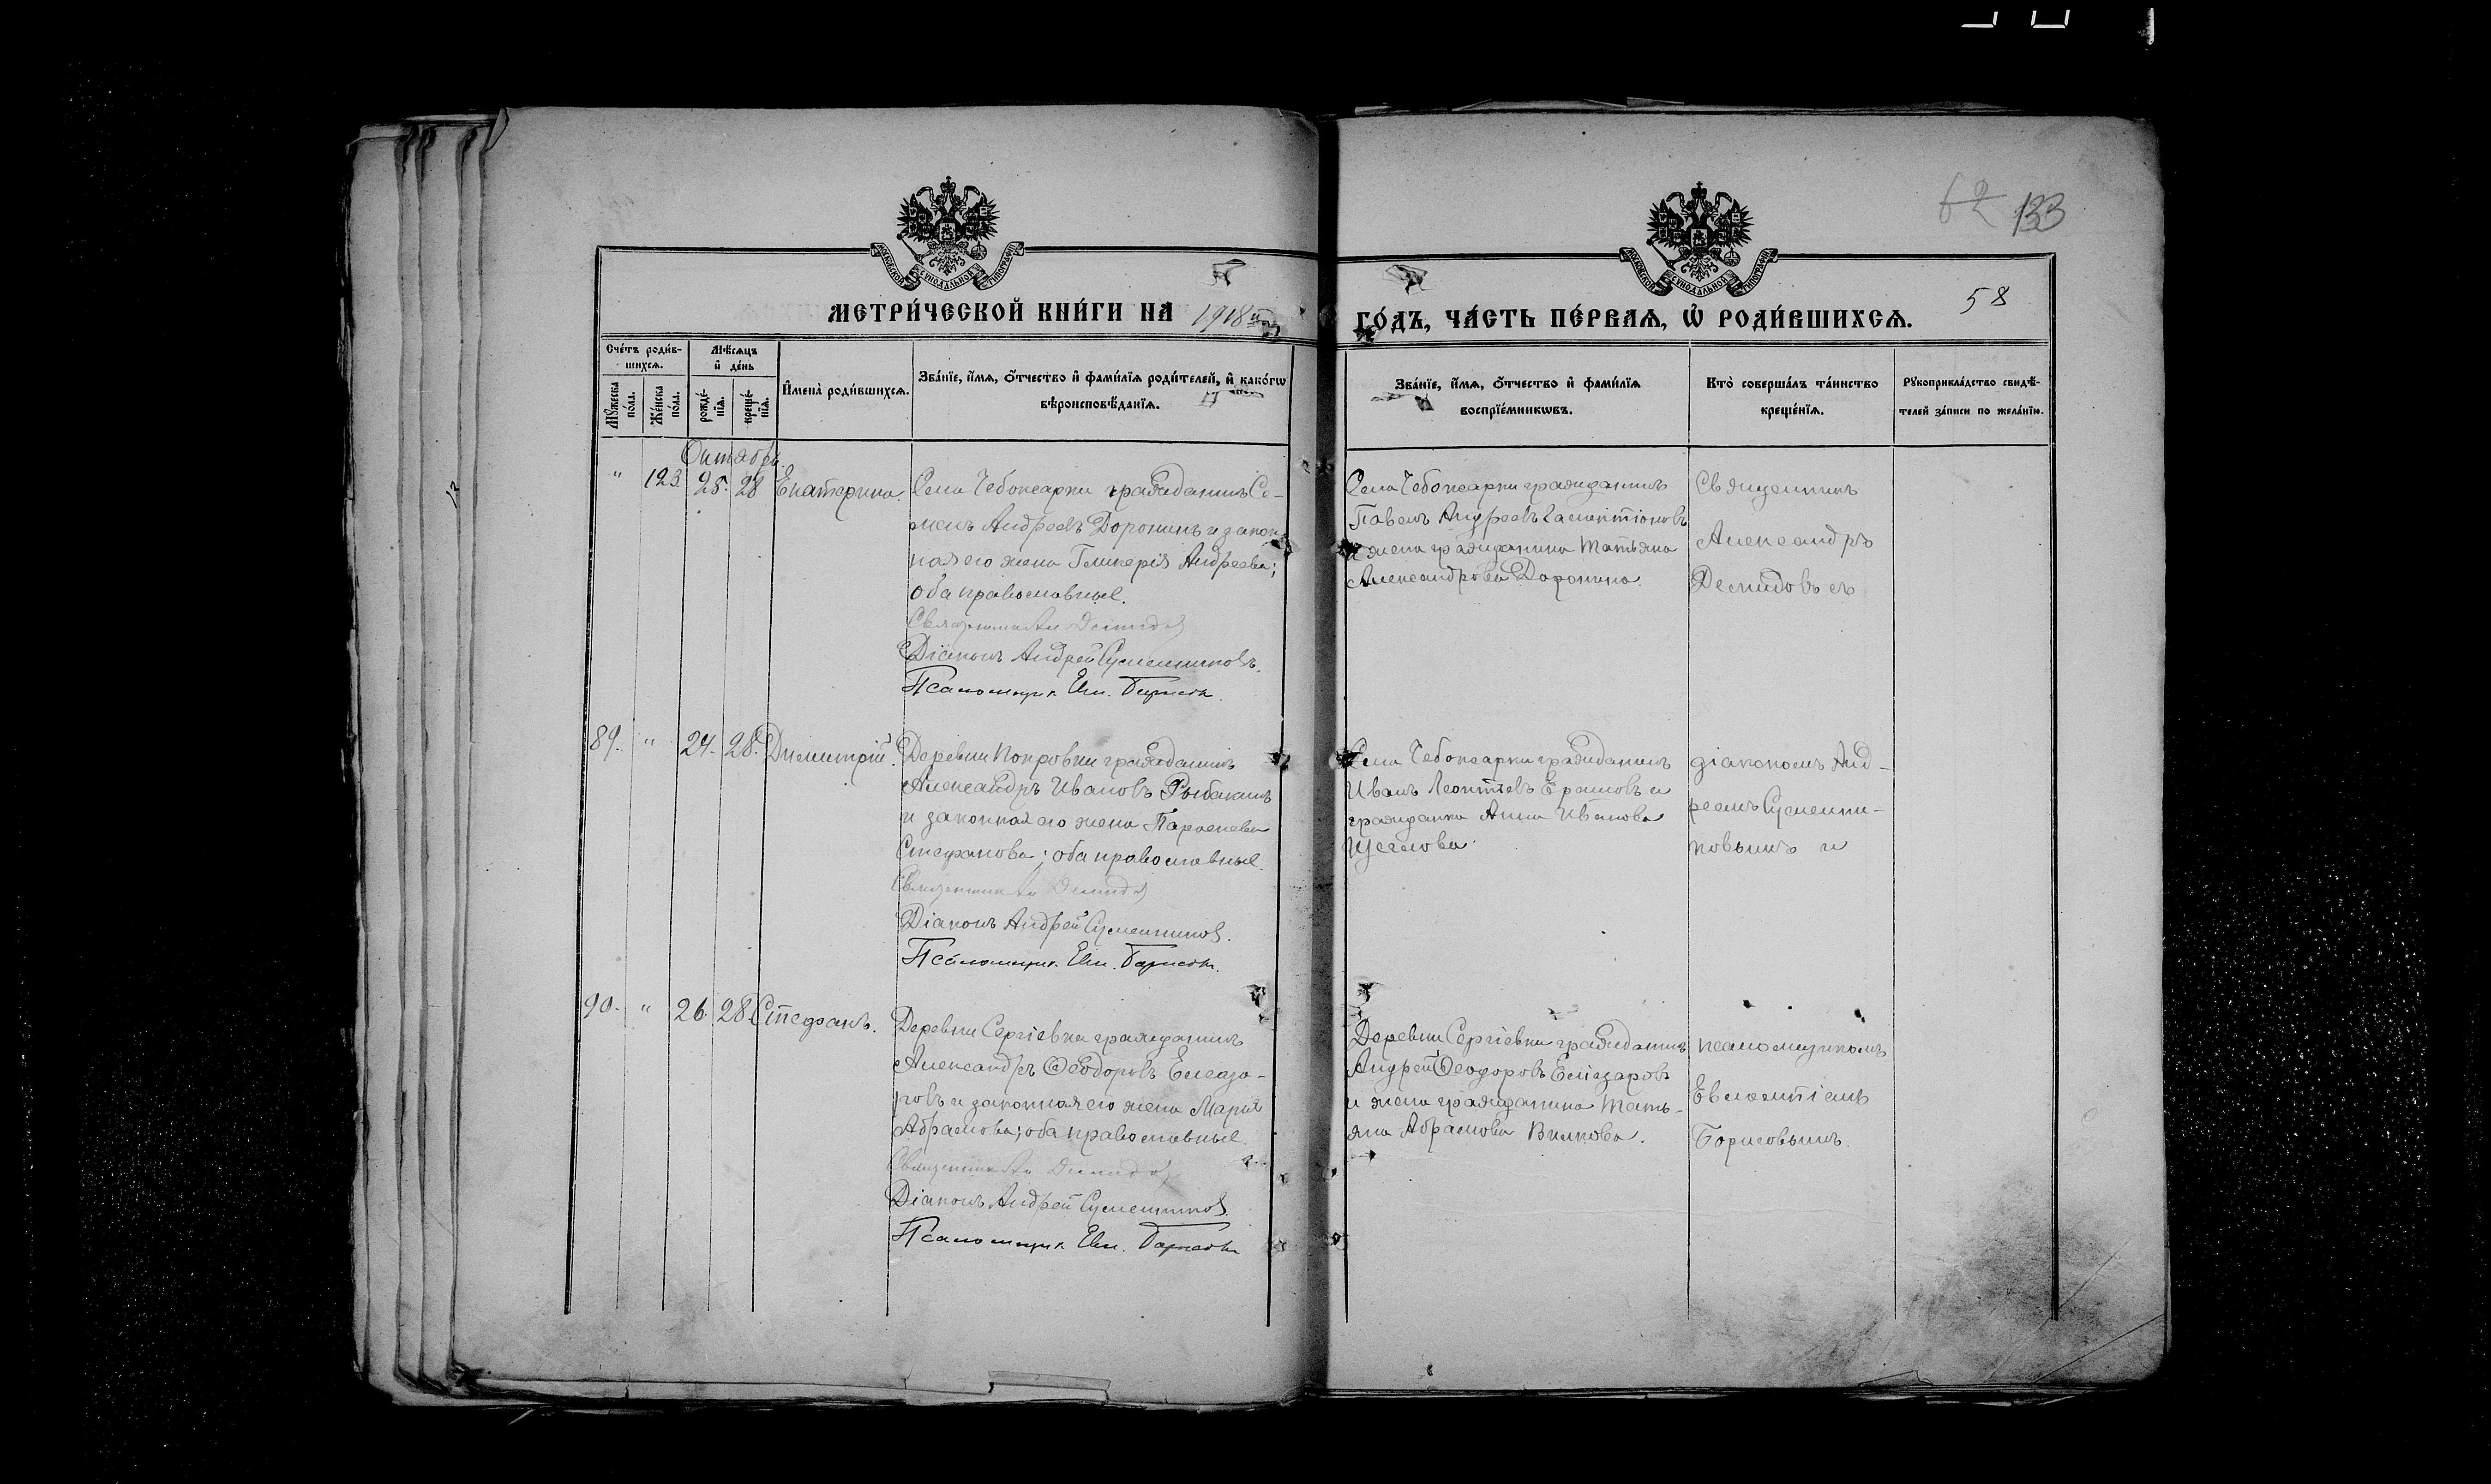 62 133
МОСКОВСКОЙ СѴНОДАЛЬНОЙ ТИПОГРАФІИ
МОСКОВСКОЙ СѴНОДАЛЬНОЙ ТИПОГРАФІИ
МЕТРИ́ЧЕСКОЙ КНИ́ГИ НА 1918 й ГО́ДЪ, ЧА́СТЬ ПЕ́РВАѦ, Ѡ҆ РОДИ́ВШИХСѦ.
58
Сче́тъ роди́в-
шихсѧ.
Мꙋ́жеска по́ла.
Же́нска по́ла.
Мѣ́сѧцъ
и҆ де́нь
рожде́-
нїѧ.
креще́-
нїѧ.
И҆мена̀ роди́вшихсѧ.
Зва́нїе, и҆́мѧ, ѻ҆́тчество и҆ фами́лїѧ роди́телей, и҆ како́гѡ
вѣроисповѣ́данїѧ.
Зва́нїе, и҆́мѧ, ѻ҆́тчество и҆ фами́лїѧ
воспрїе́мникѡвъ.
Кто̀ соверша́лъ та́инство
креще́нїѧ.
Рꙋкоприкла́дство свидѣ́-
телей за́писи по жела́нїю.
Октябрь
" 123. 25. 28 Екатерина.
Села Чебоксарки гражданинъ Се-
менъ Андреевъ Доронинъ и закон-
ная его жена Гликерія Андреева;
оба православные.
Священникъ Ал Демидов
Діаконъ Андрей Сумешниковъ.
Псаломщик Евл. Борисов.
Села Чебоксарки гражданинъ
Павелъ Андреевъ
и жена гражданина Татьяна
Александрова Доронина.
Священникъ
Александръ
Демидовъ съ
89. " 24. 28. Димитрій.
Деревни Покровки гражданинъ
Александръ Ивановъ Рыбакинъ
и законная его жена Параскева
Стефанова; оба православные.
Священник Ал Демидов
Діаконъ Андрей Сумешников.
Псаломщик Евл. Борисов.
Села Чебоксарки гражданинъ
Иванъ Леонтіевъ Ерашовъ и
гражданка Анна Иванова
Щеглова.
діакономъ Анд-
реемъ Сумешни-
ковымъ и
90. " 26. 28. Стефанъ.
Деревни Сергіевки гражданинъ
Александръ Ѳеодоровъ Елеаза-
ровъ и законная его жена Марія
Абрамова; оба православные.
Священник Ал Демидов
Діаконъ Андрей Сумешников
Псаломщик Евл. Борисов
Деревни Сергіевки гражданинъ
Андрей Ѳеодоровъ Еліазаровъ
и жена гражданина Тать-
яна Абрамова Вилкова.
псаломщикомъ
Евлампіемъ
Борисовымъ.